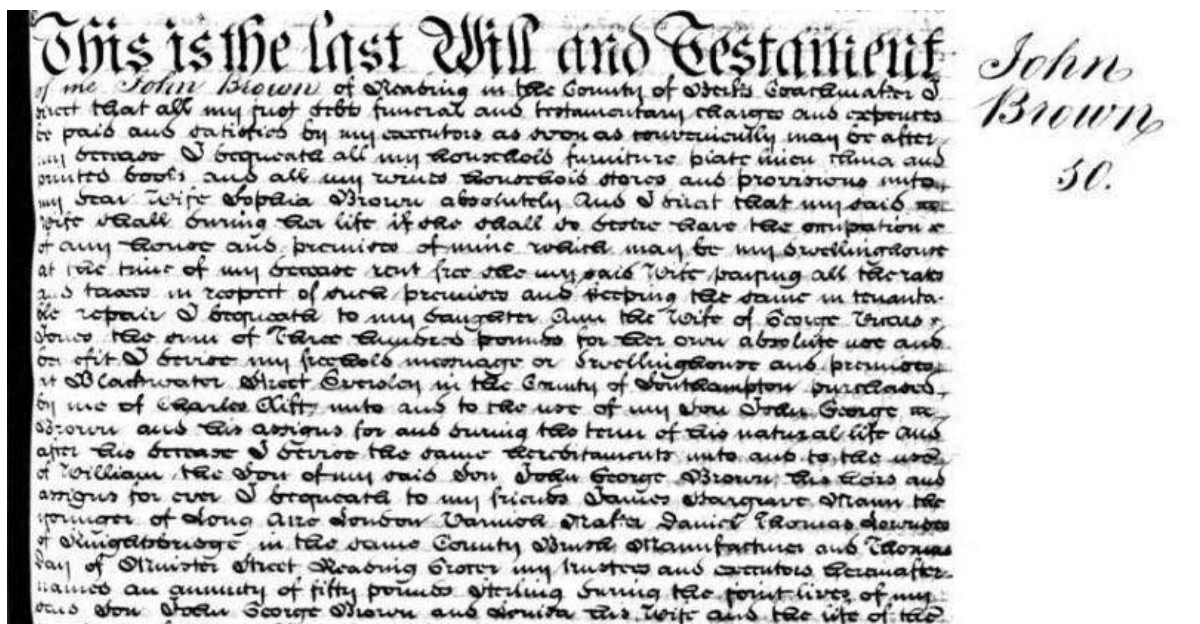 This is the last Will and Testament
of me John Brown of Reading in the County of Berks Coachmaker I
direct that all my just debts funeral and testamentary charges and expences
be paid and satisfied by my executors as soon as conveniently may be after
my decease I bequeath all my household furniture plate linen china and
printed books and all my wines household stores and provisions unto
my dear Wife Sophia Brown absolutely And I direct that my said
Wife shall during her life if she shall so desire have the occupation
of any house and premises of mine which may be my dwellinghouse
at the time of my decease rent free she my said Wife paying all the rates
and taxes in respect of such premises and keeping the same in tenanta-
ble repair I bequeath to my daughter Ann the Wife of George Vicars
Jones the sum of Three hundred pounds for her own absolute use and
benefit I devise my freehold messuage or dwellinghouse and premises
at Blackwater Street Eversley in the County of Southampton purchased
by me of Charles Clift unto and to the use of my Son John George
Brown and his assigns for and during the term of his natural life And
after his decease I devise the same hereditaments unto and to the use
of William the Son of my said Son John George Brown his heirs and
assigns for ever I bequeath to my friends James Hargrave Mann the
younger of Long Acre London Varnish Maker Daniel Thomas
of Knightsbridge in the same County Brush Manufacturer and Thomas
Day of Minster Street Reading Grocer my trustees and executors hereinafter
named an annuity of fifty pounds Sterling during the joint lives of my
said Son John George Brown and Louisa his Wife and the life of the
John
Brown
50.